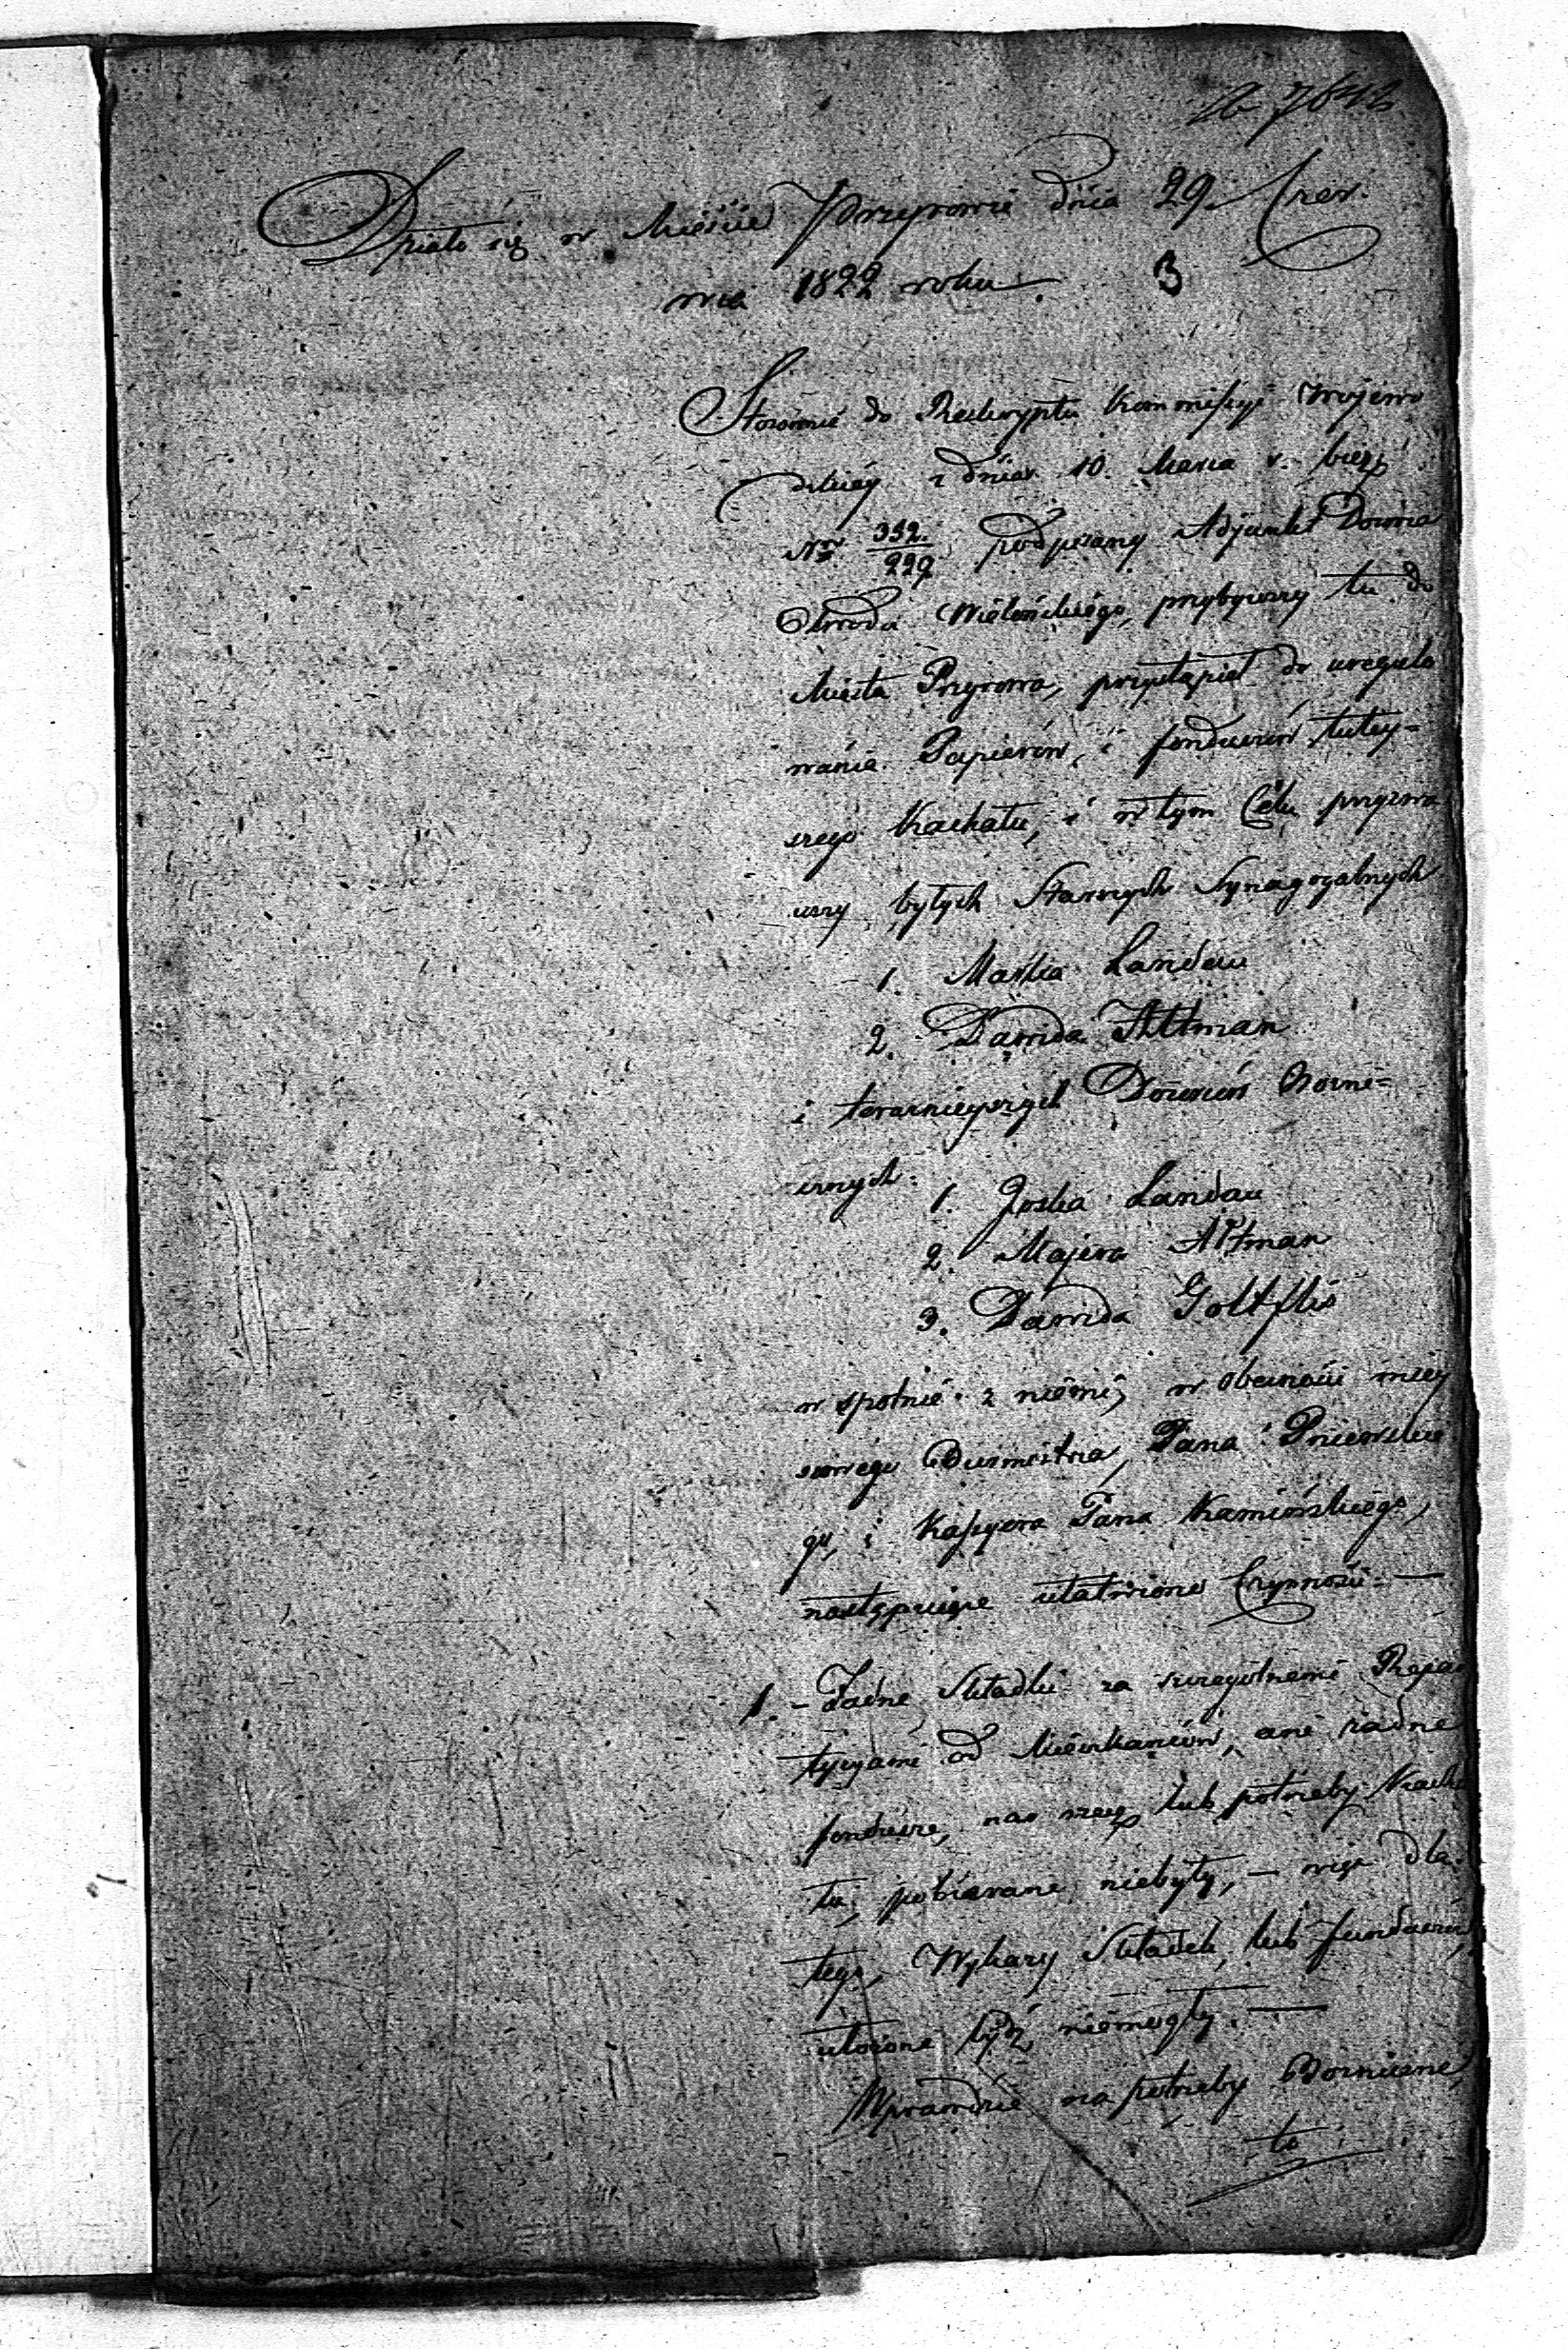 7842
Działo się w Mieście Przyrowie dnia 29. Czer.
wca 1822 roku. 3
Stosownie do Reskryptu Kommissyi Wojewo
dzkiéy z dnia 10. Marca r. bieżą
Nro 352./229 podpisany Adjunkt Dozorca
Obwodu Wieluńskiego, przybywszy tu do
Miasta Przyrowa, przystąpił do uregulo
wania Papierów, i funduszów tutey-
szego Kachału, i w tym Celu przyzwa
wszy byłych Starszych Synagogalnych
1. Maśka Landau
2. Dawida Altman
i teraznieyszych Dozorców Bożni=
cznych:
1. Joska Landau
2. Majera Altman
3. Dawida Goltflis
wspólnie z niemi, w obecności miey
scowego Burmistrza, Pana Pniewskie
go, i Kassyera Pana Kamińskiego,
następuiące ułatwiono Czynności: —
1. - Żadne Składki za szczególnemi Repar
tycyami od Mieszkańców, ani żadne
fundusze, na rzecz lub potrzeby Kacha
łu, pobierane niebyły, — więc dla
tego, Wykazy Składek, lub funduszów,
ułożone bydź niemogły. —
Wprawdzie na potrzeby Bożniczne,
to